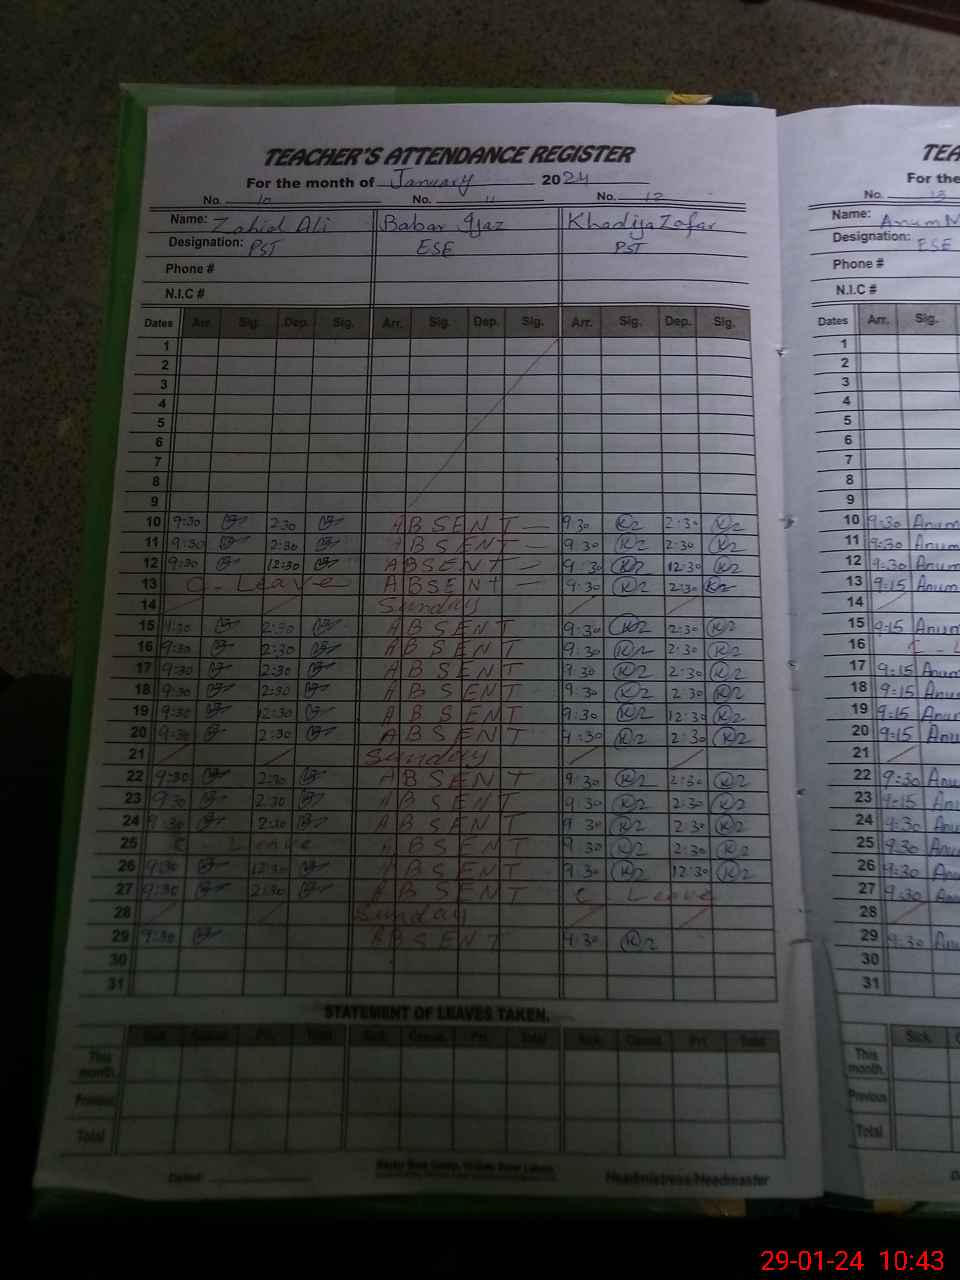 TEACHER'S ATTENDANCE REGISTER
For the month of January 2024
No. 10 No. 11 No. 12
Name: Zahid Ali Babar Ijaz Khadija Zafar
Designation: PST ESE PST
Phone #
N.I.C #
Dates Arr. Sig. Dep. Sig. Arr. Sig. Dep. Sig. Arr. Sig. Dep. Sig.
1
2
3
4
5
6
7
8
9
10 9:30 2:30 ABSENT — 9:30 K2 2:30 K2
11 9:30 2:30 ABSENT — 9:30 K2 2:30 K2
12 9:30 12:30 ABSENT — 9:30 K2 12:30 K2
13 C - Leave ABSENT — 9:30 K2 2:30 K2
14 Sunday
15 9:30 2:30 ABSENT 9:30 K2 2:30 K2
16 9:30 2:30 ABSENT 9:30 K2 2:30 K2
17 9:30 2:30 ABSENT 9:30 K2 2:30 K2
18 9:30 2:30 ABSENT 9:30 K2 2:30 K2
19 9:30 12:30 ABSENT 9:30 K2 12:30 K2
20 9:30 2:30 ABSENT 9:30 K2 2:30 K2
21 Sunday
22 9:30 2:30 ABSENT 9:30 K2 2:30 K2
23 9:30 2:30 ABSENT 9:30 K2 2:30 K2
24 9:30 2:30 ABSENT 9:30 K2 2:30 K2
25 C - Leave ABSENT 9:30 K2 2:30 K2
26 9:30 12:30 ABSENT 9:30 K2 12:30 K2
27 9:30 2:30 ABSENT C - Leave
28 Sunday
29 9:30 ABSENT 9:30 K2
30
31
STATEMENT OF LEAVES TAKEN.
Sick. Casual. Pri. Total Sick. Casual. Pri. Total Sick. Casual. Pri. Total
This month.
Previous
Total
Dated
Headmistress/Headmaster
TEA
For the
No. 13
Name: Anum
Designation: ESE
Phone #
N.I.C #
Dates Arr. Sig.
1
2
3
4
5
6
7
8
9
10 9:30 Anum
11 9:30 Anum
12 9:30 Anum
13 9:15 Anum
14
15 9:15 Anum
16 C - L
17 9:15 Anum
18 9:15 Anum
19 9:15 Anum
20 9:15 Anum
21
22 9:30 Anu
23 9:15 Anum
24 9:30 Anum
25 9:30 Anum
26 9:30 Anum
27 9:30 Anu
28
29 9:30 Anu
30
31
Sick.
This month.
Previous
Total
29-01-24 10:43